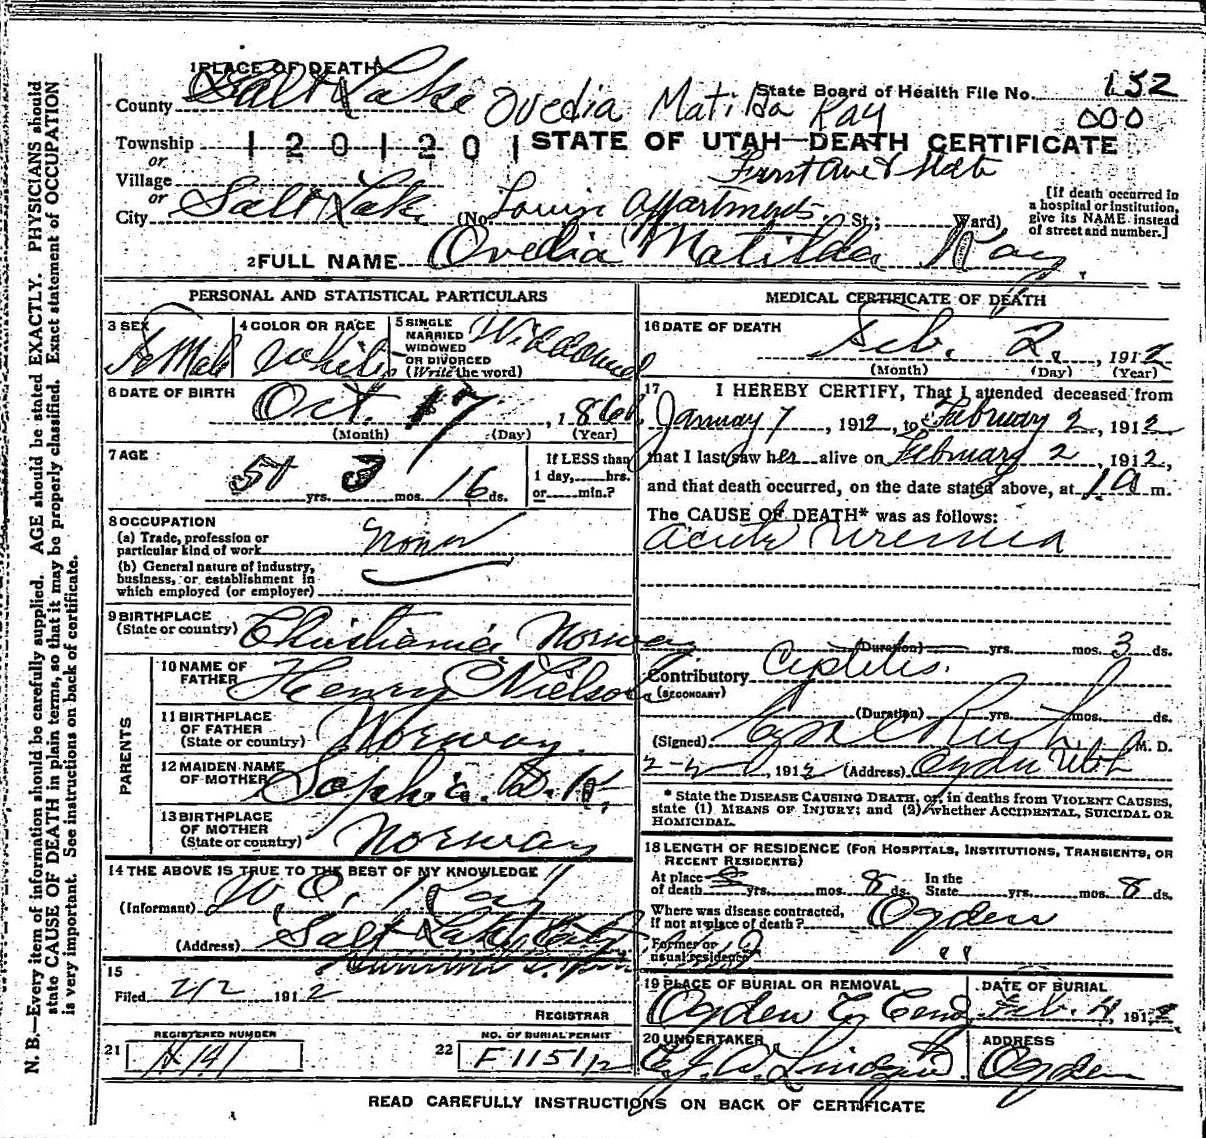 N. B.—Every item of information should be carefully supplied. AGE should be stated EXACTLY. PHYSICIANS should
state CAUSE OF DEATH in plain terms, so that it may be properly classified. Exact statement of OCCUPATION
is very important. See instructions on back of certificate.
1 PLACE OF DEATH
County Salt Lake
Ovedia Matilda Kay
State Board of Health File No. 152
000
Township 120 120 1
STATE OF UTAH—DEATH CERTIFICATE
or
Village
First Ave & State
or
City Salt Lake (No. Louise Appartments St.; Ward)
[If death occurred in
a hospital or institution,
give its NAME instead
of street and number.]
2 FULL NAME Ovedia Matilda Kay
PERSONAL AND STATISTICAL PARTICULARS
3 SEX Fe Male
4 COLOR OR RACE White
5 SINGLE
MARRIED
WIDOWED
OR DIVORCED
(Write the word) Widdowed
6 DATE OF BIRTH
Oct. 17, 186
(Month) (Day) (Year)
7 AGE
51 yrs. 3 mos. 16 ds.
If LESS than
1 day, hrs.
or min.?
8 OCCUPATION
(a) Trade, profession or
particular kind of work None
(b) General nature of industry,
business, or establishment in
which employed (or employer)
9 BIRTHPLACE
(State or country) Christiania Norway
PARENTS
10 NAME OF
FATHER Henry Nielson
11 BIRTHPLACE
OF FATHER
(State or country) Norway.
12 MAIDEN NAME
OF MOTHER Sophia. D. K.
13 BIRTHPLACE
OF MOTHER
(State or country) Norway
14 THE ABOVE IS TRUE TO THE BEST OF MY KNOWLEDGE
(Informant) W. O. Kay
(Address) Salt Lake City
15
Filed 2/2 1912
REGISTRAR
21 REGISTERED NUMBER
22 NO. OF BURIAL PERMIT
F 1151/12
MEDICAL CERTIFICATE OF DEATH
16 DATE OF DEATH
Feb. 2, 1912
(Month) (Day) (Year)
17 I HEREBY CERTIFY, That I attended deceased from
January 7, 1912, to February 2, 1912
that I last saw her alive on February 2, 1912,
and that death occurred, on the date stated above, at 1 a m.
The CAUSE OF DEATH* was as follows:
Acute Uremia
(Duration) yrs. mos. 3 ds.
Contributory Cystitis.
(SECONDARY)
(Duration) yrs. mos. ds.
(Signed) M. D.
1912 (Address) Ogden Utah
* State the DISEASE CAUSING DEATH, or, in deaths from VIOLENT CAUSES,
state (1) MEANS OF INJURY; and (2) whether ACCIDENTAL, SUICIDAL OR
HOMICIDAL.
18 LENGTH OF RESIDENCE (FOR HOSPITALS, INSTITUTIONS, TRANSIENTS, OR
RECENT RESIDENTS)
At place
of death yrs. mos. 8 ds.
In the
State yrs. mos. 8 ds.
Where was disease contracted,
if not at place of death? Ogden
Former or
usual residence " "
19 PLACE OF BURIAL OR REMOVAL
Ogden Cy Cem
DATE OF BURIAL
Feb. 4, 1912
20 UNDERTAKER
ADDRESS
Ogden
READ CAREFULLY INSTRUCTIONS ON BACK OF CERTIFICATE